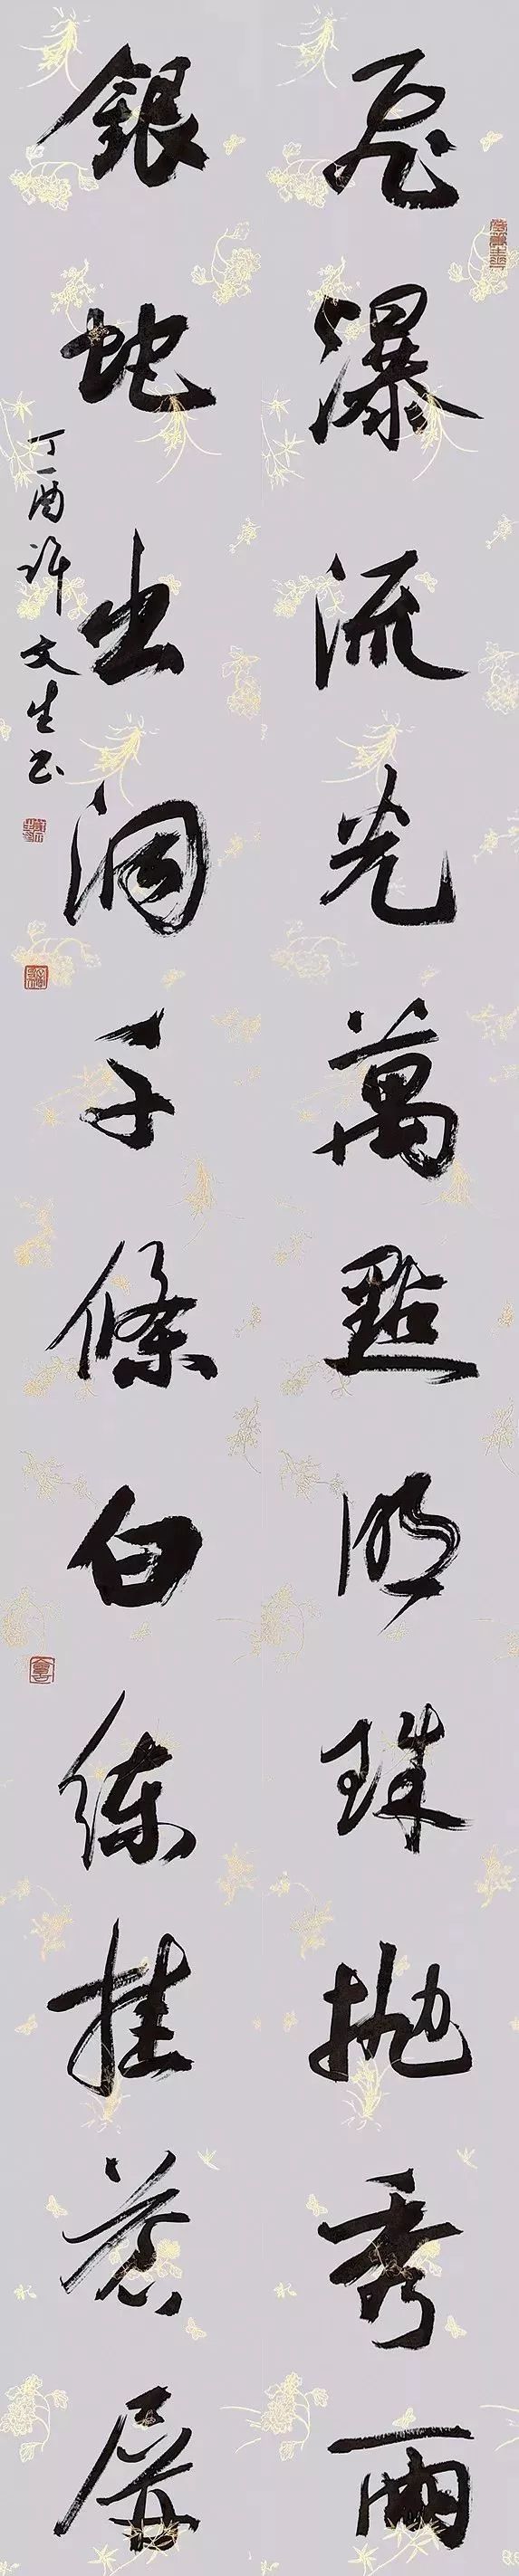 飛瀑流光萬點明珠拋秀雨
銀蛇出洞千條白練挂蒼屏
丁酉許文生书